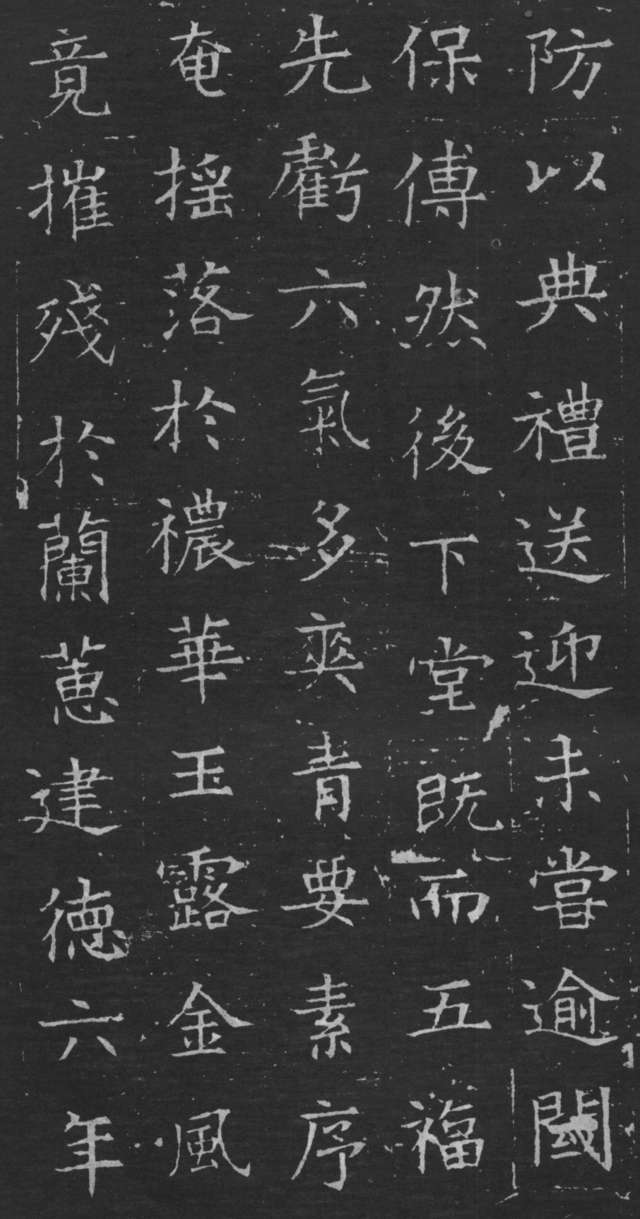 防以典禮送迎未嘗逾閾
保傅然後下堂既而五福
先虧六氣多爽青要素序
奄搖落於穠華玉露金風
竟摧殘於蘭蕙建德六年